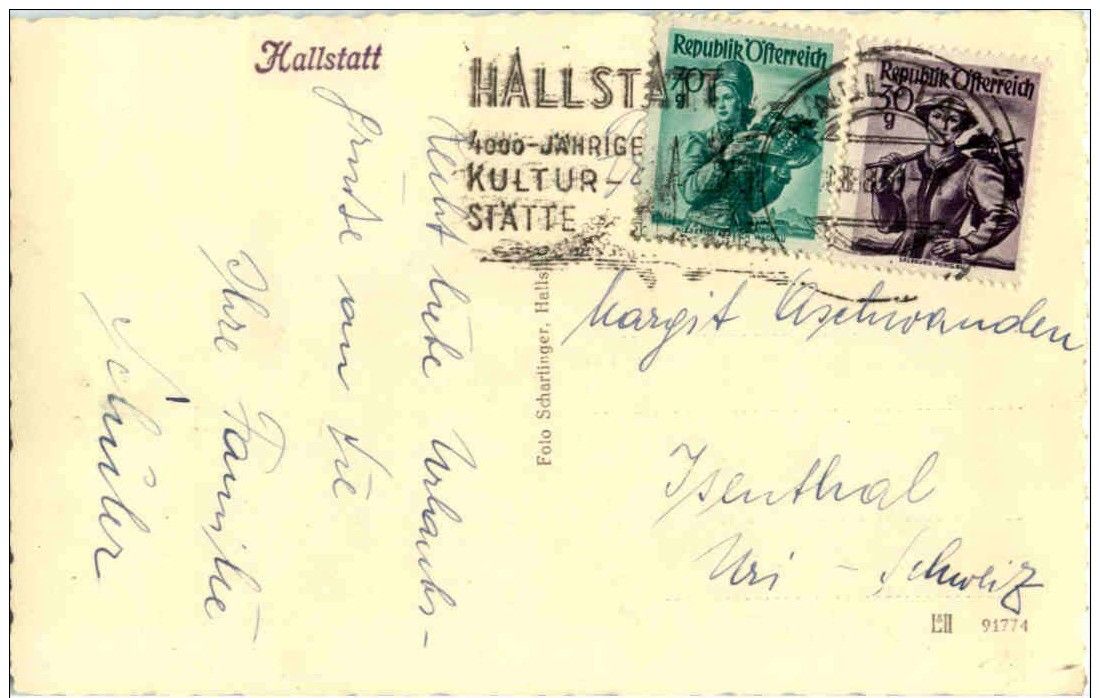 Hallstatt
HALLSTATT
4000-JÄHRIGE
KULTUR-
STÄTTE
Republik Österreich
70
g
Republik Österreich
30
g
Recht liebe Urlaubs-
Grüsse an Sie
Ihre Familie
Schuler
Foto Schartinger, Halls
Margit Aschwanden
Isenthal
Uri - Schweiz
91774